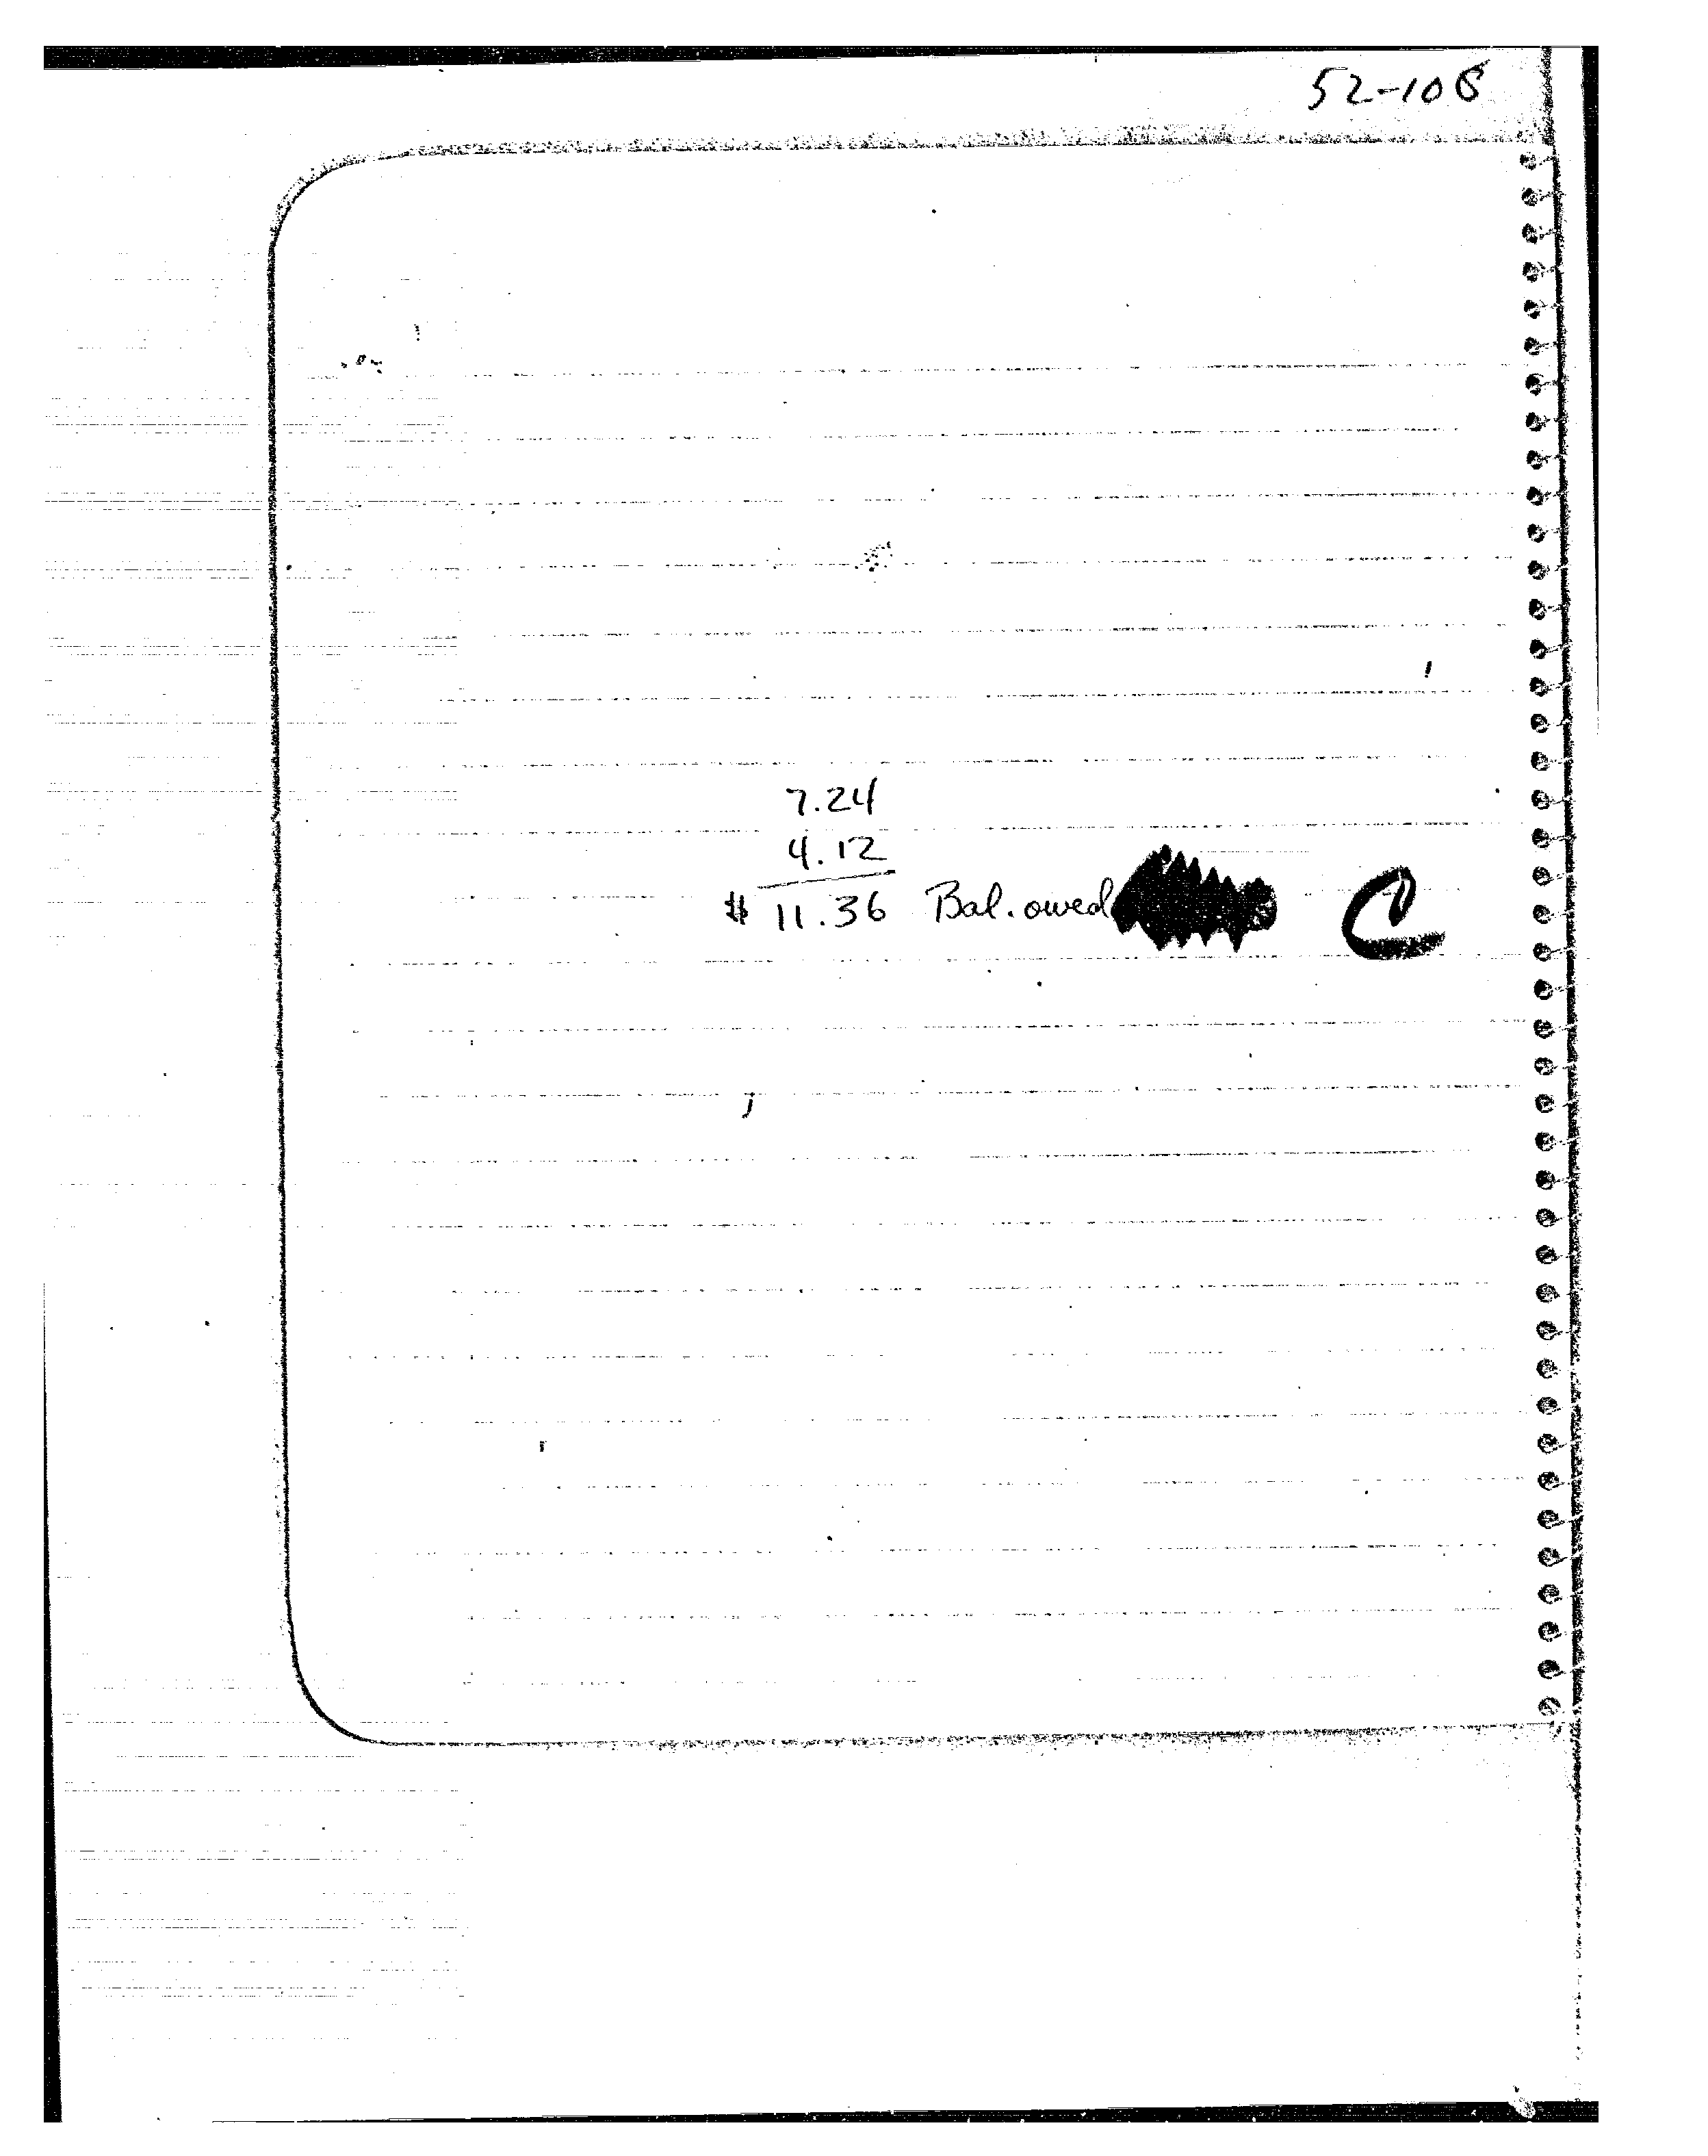 52-108
7.24
4.12
$ 11.36 Bal. owed C